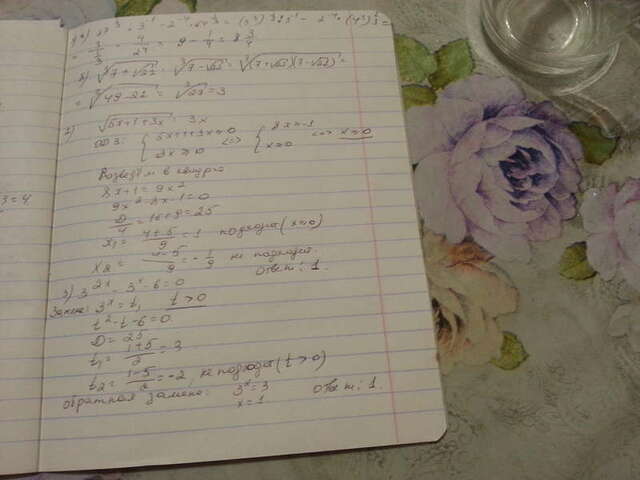 = 9 - 1/4 = 8 3/4
= ∛(49-22) = ∛27 = 3
2) √(5x+1+3x) = 3x
ОДЗ: { 5x+1+3x≥0 <=> { 8x≥-1 <=> x≥0
3x≥0 x≥0
Возведём в квадрат
8x+1=9x²
9x²-8x-1=0
D/4 = 16+9=25
x₁ = (4+5)/9 = 1 подходит (x≥0)
x₂ = (4-5)/9 = -1/9 не подходит.
Ответ: 1.
3) 3^(2x) - 3^x - 6=0
Замена: 3^x = t, t>0
t²-t-6=0
D=25
t₁ = (1+5)/2 = 3
t₂ = (1-5)/2 = -2, не подходит (t>0)
обратная замена: 3^x=3 Ответ: 1.
x=1
3=4